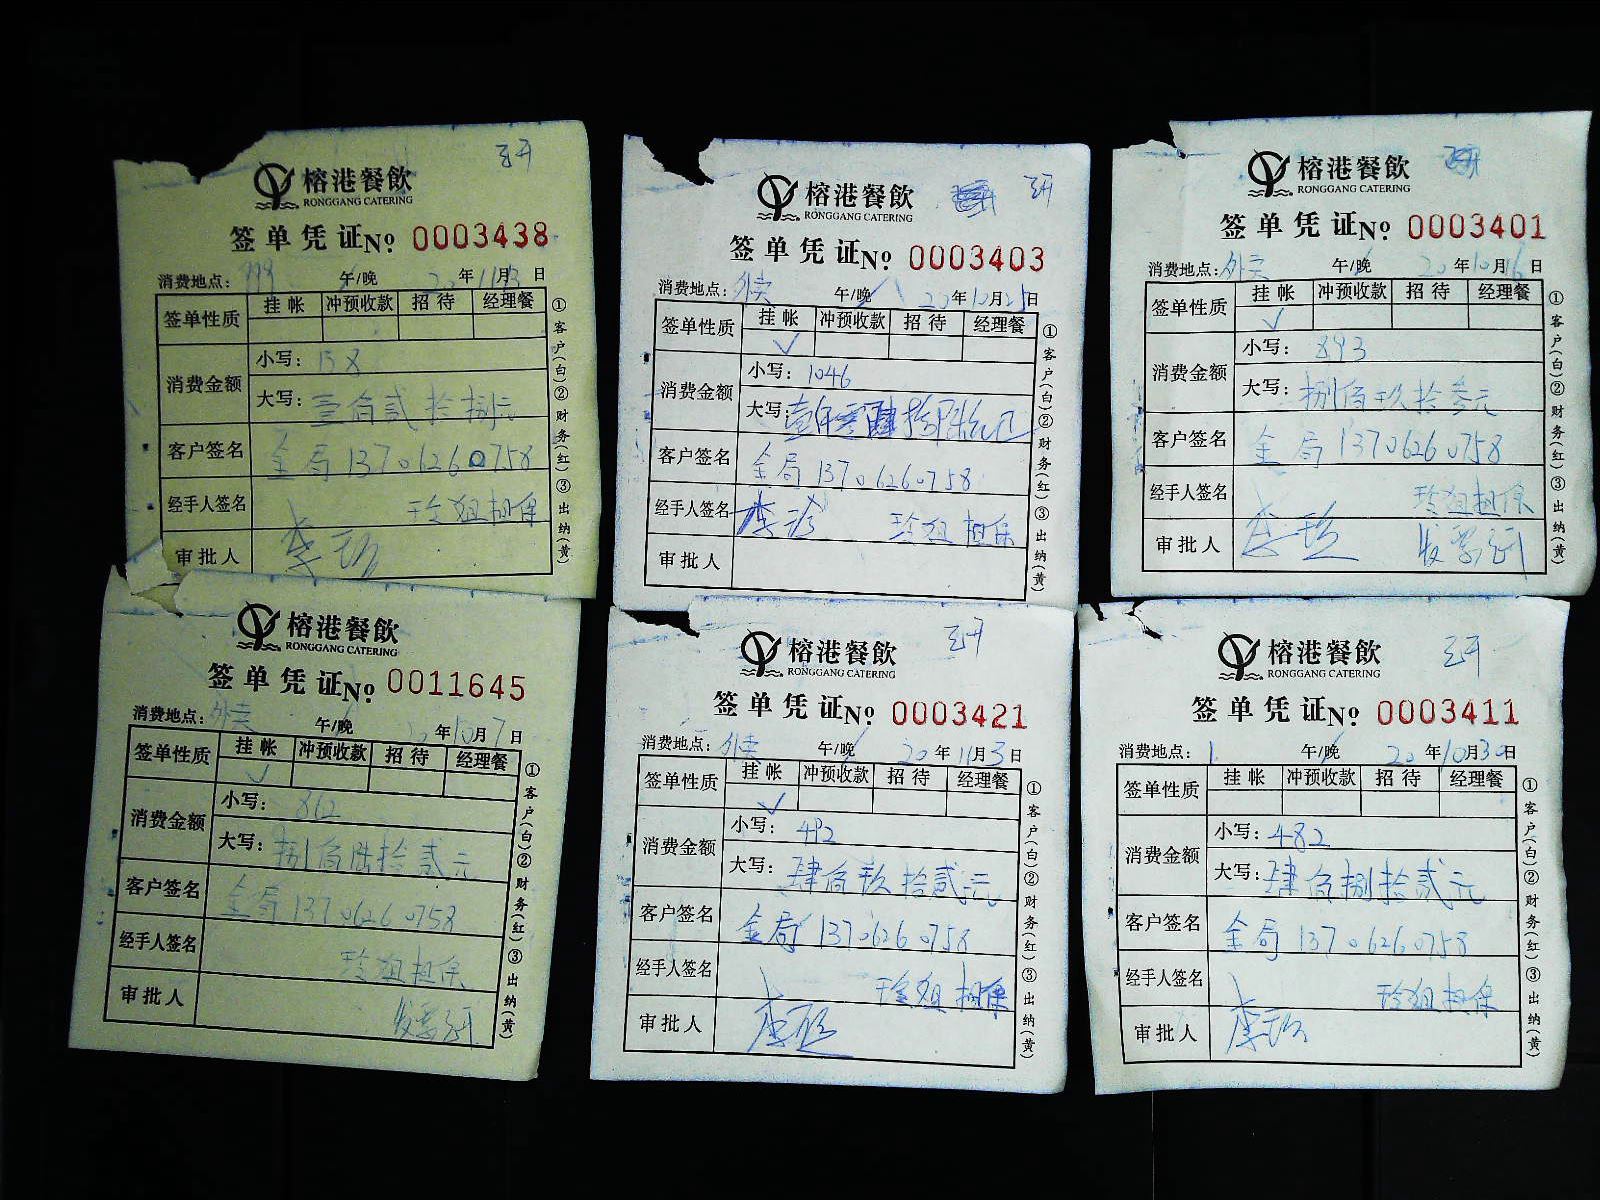 已开
榕港餐飲
RONGGANG CATERING
签单凭证№ 0003438
消费地点： 午/晚 20年11月13日
签单性质 挂帐 冲预收款 招待 经理餐
消费金额 小写：
大写：壹佰贰拾捌元
客户签名 金局 13706260758
经手人签名 玲姐担保
审批人 李玲
①客户(白)②财务(红)③出纳(黄)
已开
榕港餐飲
RONGGANG CATERING
签单凭证№ 0003403
消费地点：外卖 午/晚 20年10月21日
签单性质 挂帐 冲预收款 招待 经理餐
✓
消费金额 小写：1046
大写：壹仟零肆拾陆元
客户签名 金局 13706260758
经手人签名 李玲 玲姐担保
审批人
①客户(白)②财务(红)③出纳(黄)
榕港餐飲
RONGGANG CATERING
签单凭证№ 0003401
消费地点：外卖 午/晚 20年10月16日
签单性质 挂帐 冲预收款 招待 经理餐
✓
消费金额 小写：893
大写：捌佰玖拾叁元
客户签名 金局 13706260758
经手人签名 玲姐担保
审批人 李玲 发票已开
①客户(白)②财务(红)③出纳(黄)
榕港餐飲
RONGGANG CATERING
签单凭证№ 0011645
消费地点：外卖 午/晚 20年10月7日
签单性质 挂帐 冲预收款 招待 经理餐
✓
消费金额 小写：862
大写：捌佰陆拾贰元
客户签名 金局 13706260758
经手人签名 玲姐担保
审批人 发票已开
①客户(白)②财务(红)③出纳(黄)
已开
榕港餐飲
RONGGANG CATERING
签单凭证№ 0003421
消费地点：外卖 午/晚 20年11月3日
签单性质 挂帐 冲预收款 招待 经理餐
✓
消费金额 小写：492
大写：肆佰玖拾贰元
客户签名 金局 13706260758
经手人签名 玲姐担保
审批人 李玲
①客户(白)②财务(红)③出纳(黄)
已开
榕港餐飲
RONGGANG CATERING
签单凭证№ 0003411
消费地点： 午/晚 20年10月30日
签单性质 挂帐 冲预收款 招待 经理餐
消费金额 小写：482
大写：肆佰捌拾贰元
客户签名 金局 13706260758
经手人签名 玲姐担保
审批人 李玲
①客户(白)②财务(红)③出纳(黄)